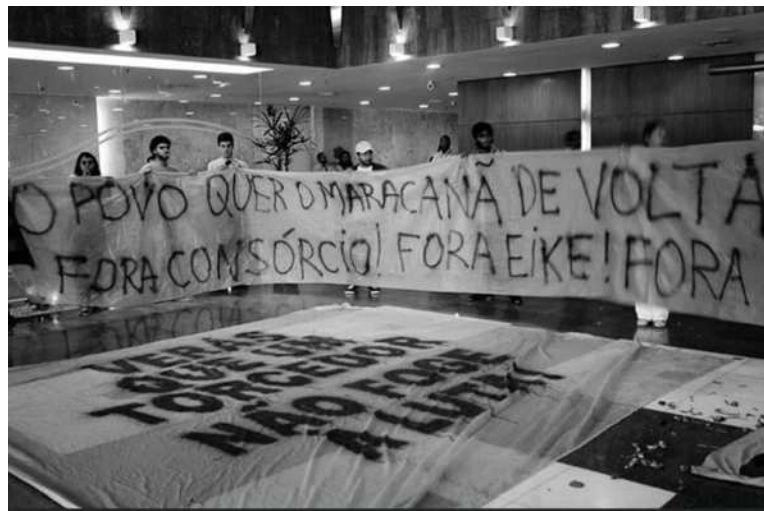 O POVO QUER O MARACANÃ DE VOLTA
FORA CONSÓRCIO! FORA EIKE! FORA
VERÁS
QUE UM
TORCEDOR
NÃO FOGE
A LUTA!